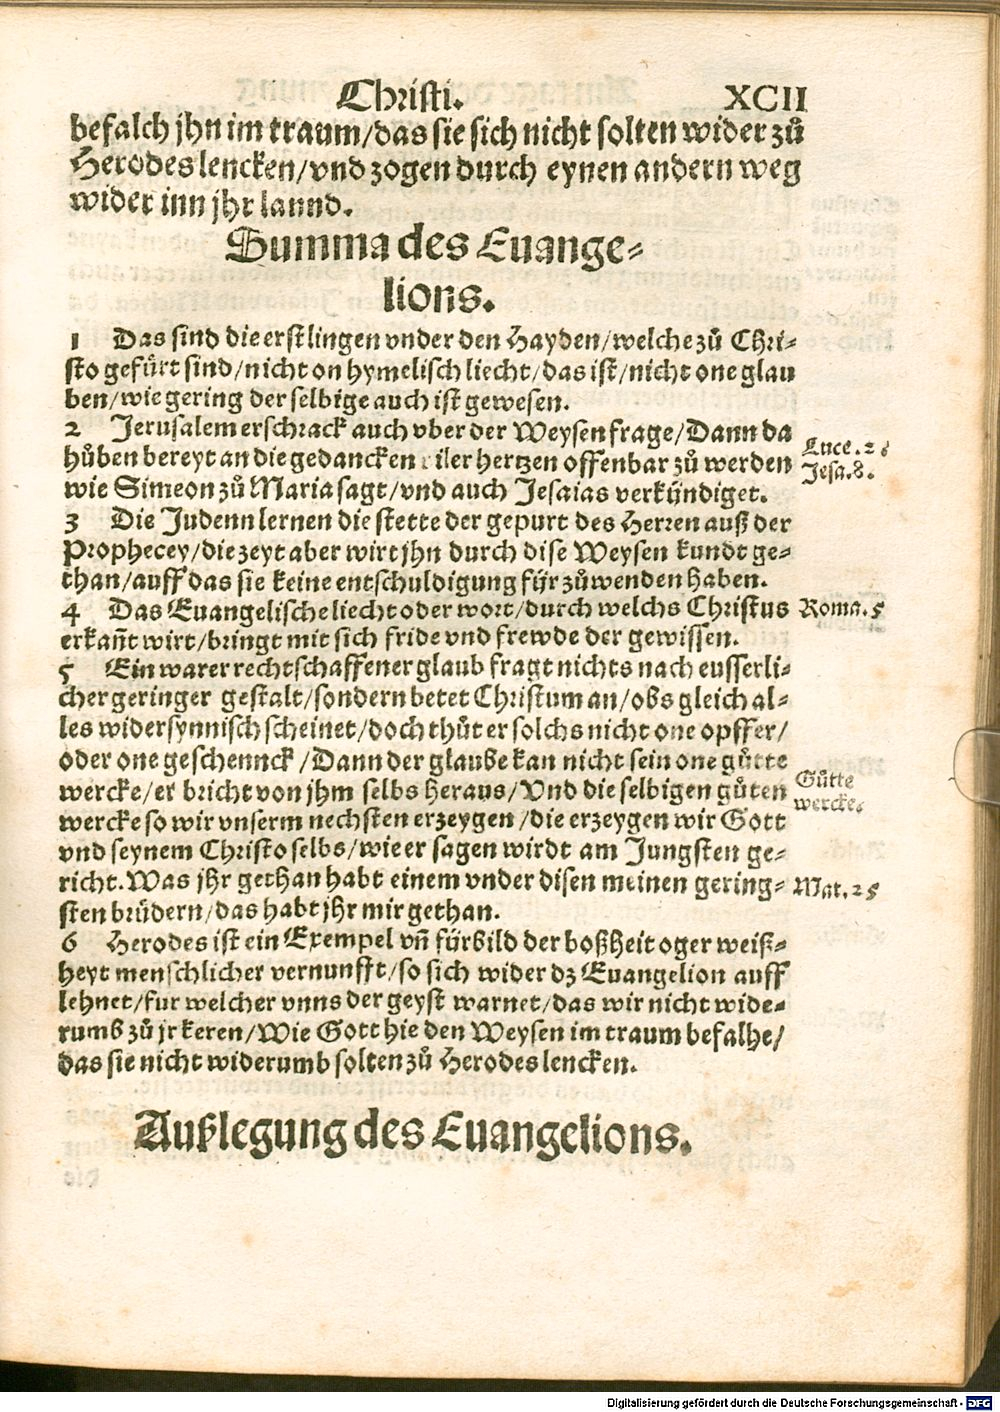 Christi. XCII
befalch jhn im traum/das sie sich nicht solten wider zů
Herodes lencken/vnd zogen durch eynen andern weg
wider inn jhr lannd.
Summa des Euange-
lions.
1 Das sind die erstlingen vnder den Hayden/welche zů Chri-
sto gefürt sind/nicht on hymelisch liecht/das ist/nicht one glau
ben/wie gering der selbige auch ist gewesen.
2 Jerusalem erschrack auch vber der Weysen frage/Dann da
hůben bereyt an die gedancken viler hertzen offenbar zů werden
wie Simeon zů Maria sagt/vnd auch Jesaias verkündiget.
Luce. 2.
Jesa. 8.
3 Die Judenn lernen die stette der gepurt des Herren auß der
Prophecey/die zeyt aber wirt jhn durch dise Weysen kundt ge-
than/auff das sie keine entschuldigung für zůwenden haben.
4 Das Euangelische liecht oder wort/durch welchs Christus
Roma. 5
erkañt wirt/bringt mit sich fride vnd frewde der gewissen.
5 Ein warer rechtschaffener glaub fragt nichts nach eusserli-
cher geringer gestalt/sondern betet Christum an/obs gleich al-
les widersynnisch scheinet/doch thůt er solchs nicht one opffer/
oder one geschennck/Dann der glaube kan nicht sein one gůtte
wercke/er bricht von jhm selbs heraus/Vnd die selbigen gůten
Gůtte
wercke.
wercke so wir vnserm nechsten erzeygen/die erzeygen wir Gott
vnd seynem Christo selbs/wie er sagen wirdt am Jungsten ge-
richt. Was jhr gethan habt einem vnder disen meinen gering-
Mat. 25
sten brüdern/das habt jhr mir gethan.
6 Herodes ist ein Exempel vñ fürbild der boßheit oger weiß-
heyt menschlicher vernunfft/so sich wider dz Euangelion auff
lehnet/fur welcher vnns der geyst warnet/das wir nicht wide-
rumb zů jr keren/Wie Gott hie den Weysen im traum befalhe/
das sie nicht widerumb solten zů Herodes lencken.
Außlegung des Euangelions.
Digitalisierung gefördert durch die Deutsche Forschungsgemeinschaft - DFG